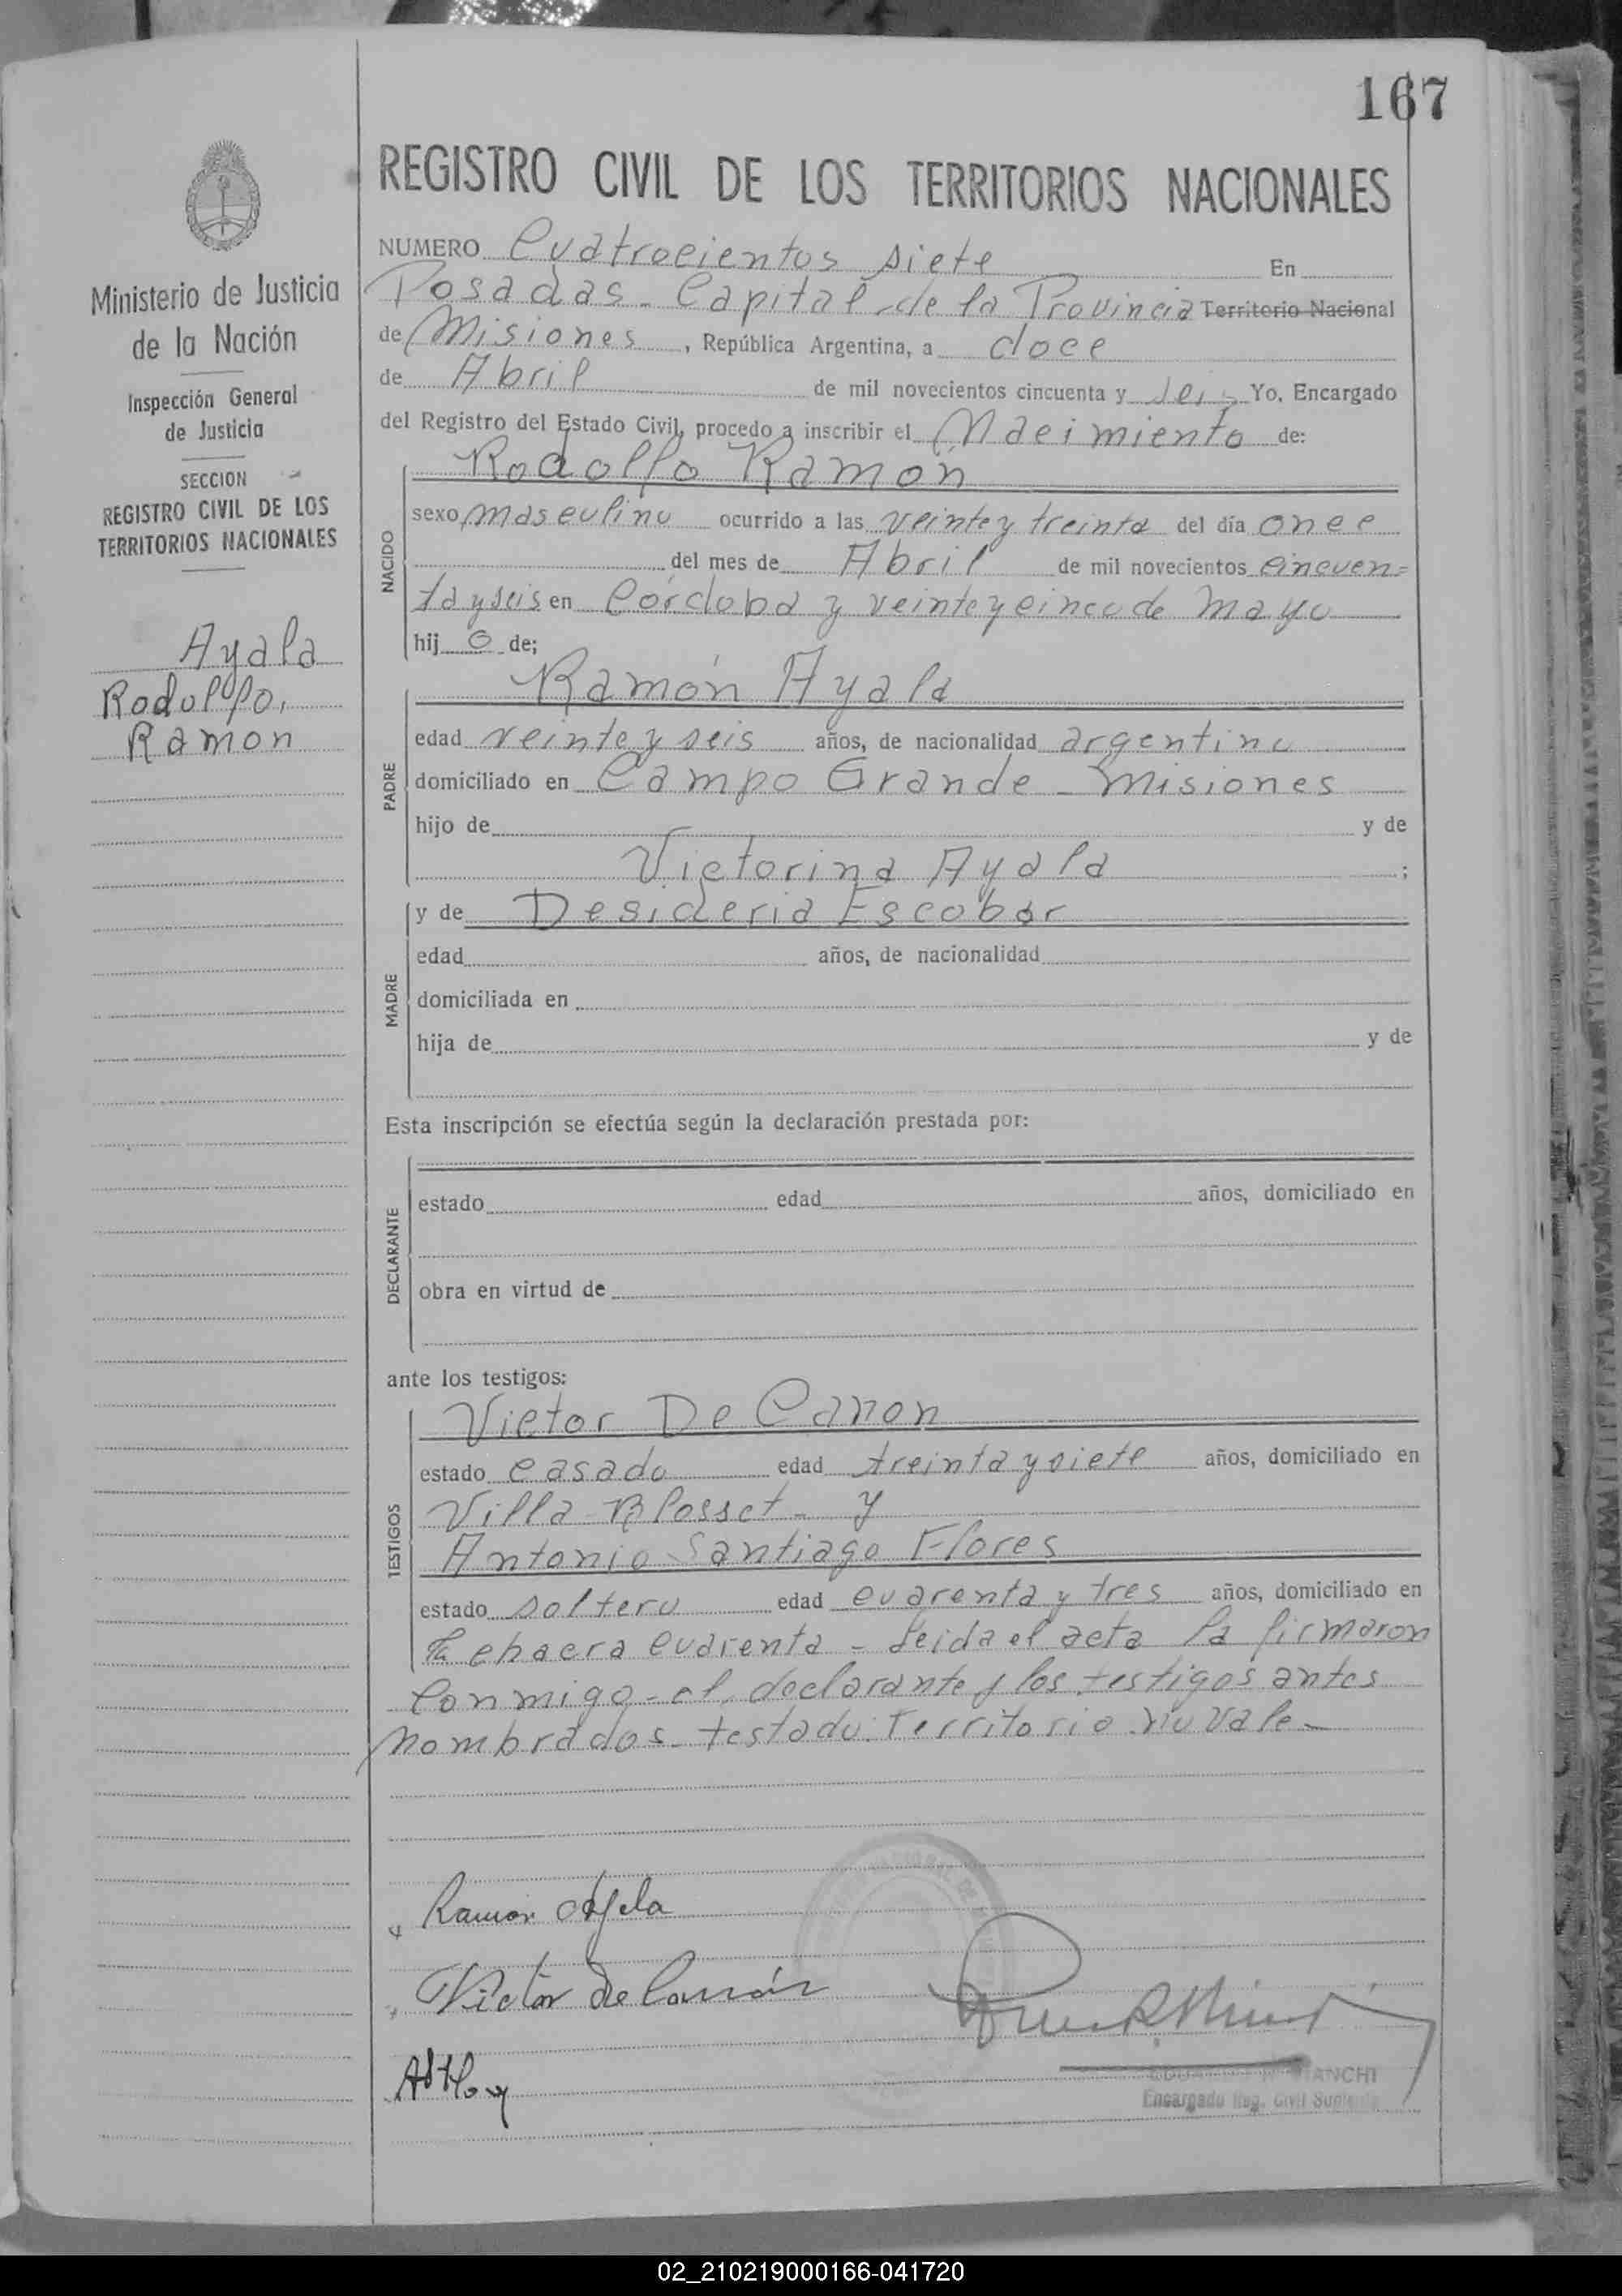 167
REGISTRO CIVIL DE LOS TERRITORIOS NACIONALES
Ministerio de Justicia
de la Nación
Inspección General
de Justicia
SECCION
REGISTRO CIVIL DE LOS
TERRITORIOS NACIONALES
Ayala
Rodolfo,
Ramon
NUMERO Cuatrocientos siete En
Posadas - Capital de la Provincia Territorio Nacional
de Misiones, República Argentina, a doce
de Abril de mil novecientos cincuenta y seis Yo, Encargado
del Registro del Estado Civil, procedo a inscribir el Nacimiento de:
Rodolfo Ramón
NACIDO
sexo masculino ocurrido a las veinte y treinta del día once
del mes de Abril de mil novecientos cincuen=
ta y seis en Córdoba y veinte y cinco de Mayo
hijo de;
Ramón Ayala
PADRE
edad veinte y seis años, de nacionalidad argentino
domiciliado en Campo Grande - Misiones
hijo de y de
Victorina Ayala ;
y de Desideria Escobar
MADRE
edad años, de nacionalidad
domiciliada en
hija de y de
Esta inscripción se efectúa según la declaración prestada por:
DECLARANTE
estado edad años, domiciliado en
obra en virtud de
ante los testigos:
Victor De Canon
TESTIGOS
estado casado edad treinta y siete años, domiciliado en
Villa Blosset - y
Antonio Santiago Flores
estado soltero edad cuarenta y tres años, domiciliado en
la chacra cuarenta - Leida el acta la firmaron
conmigo - el declarante y los testigos antes
nombrados - testado: Territorio no vale -
Ramon Ayala
Victor De
ANCHI
Encargado Reg. Civil Suplente
02_210219000166-041720